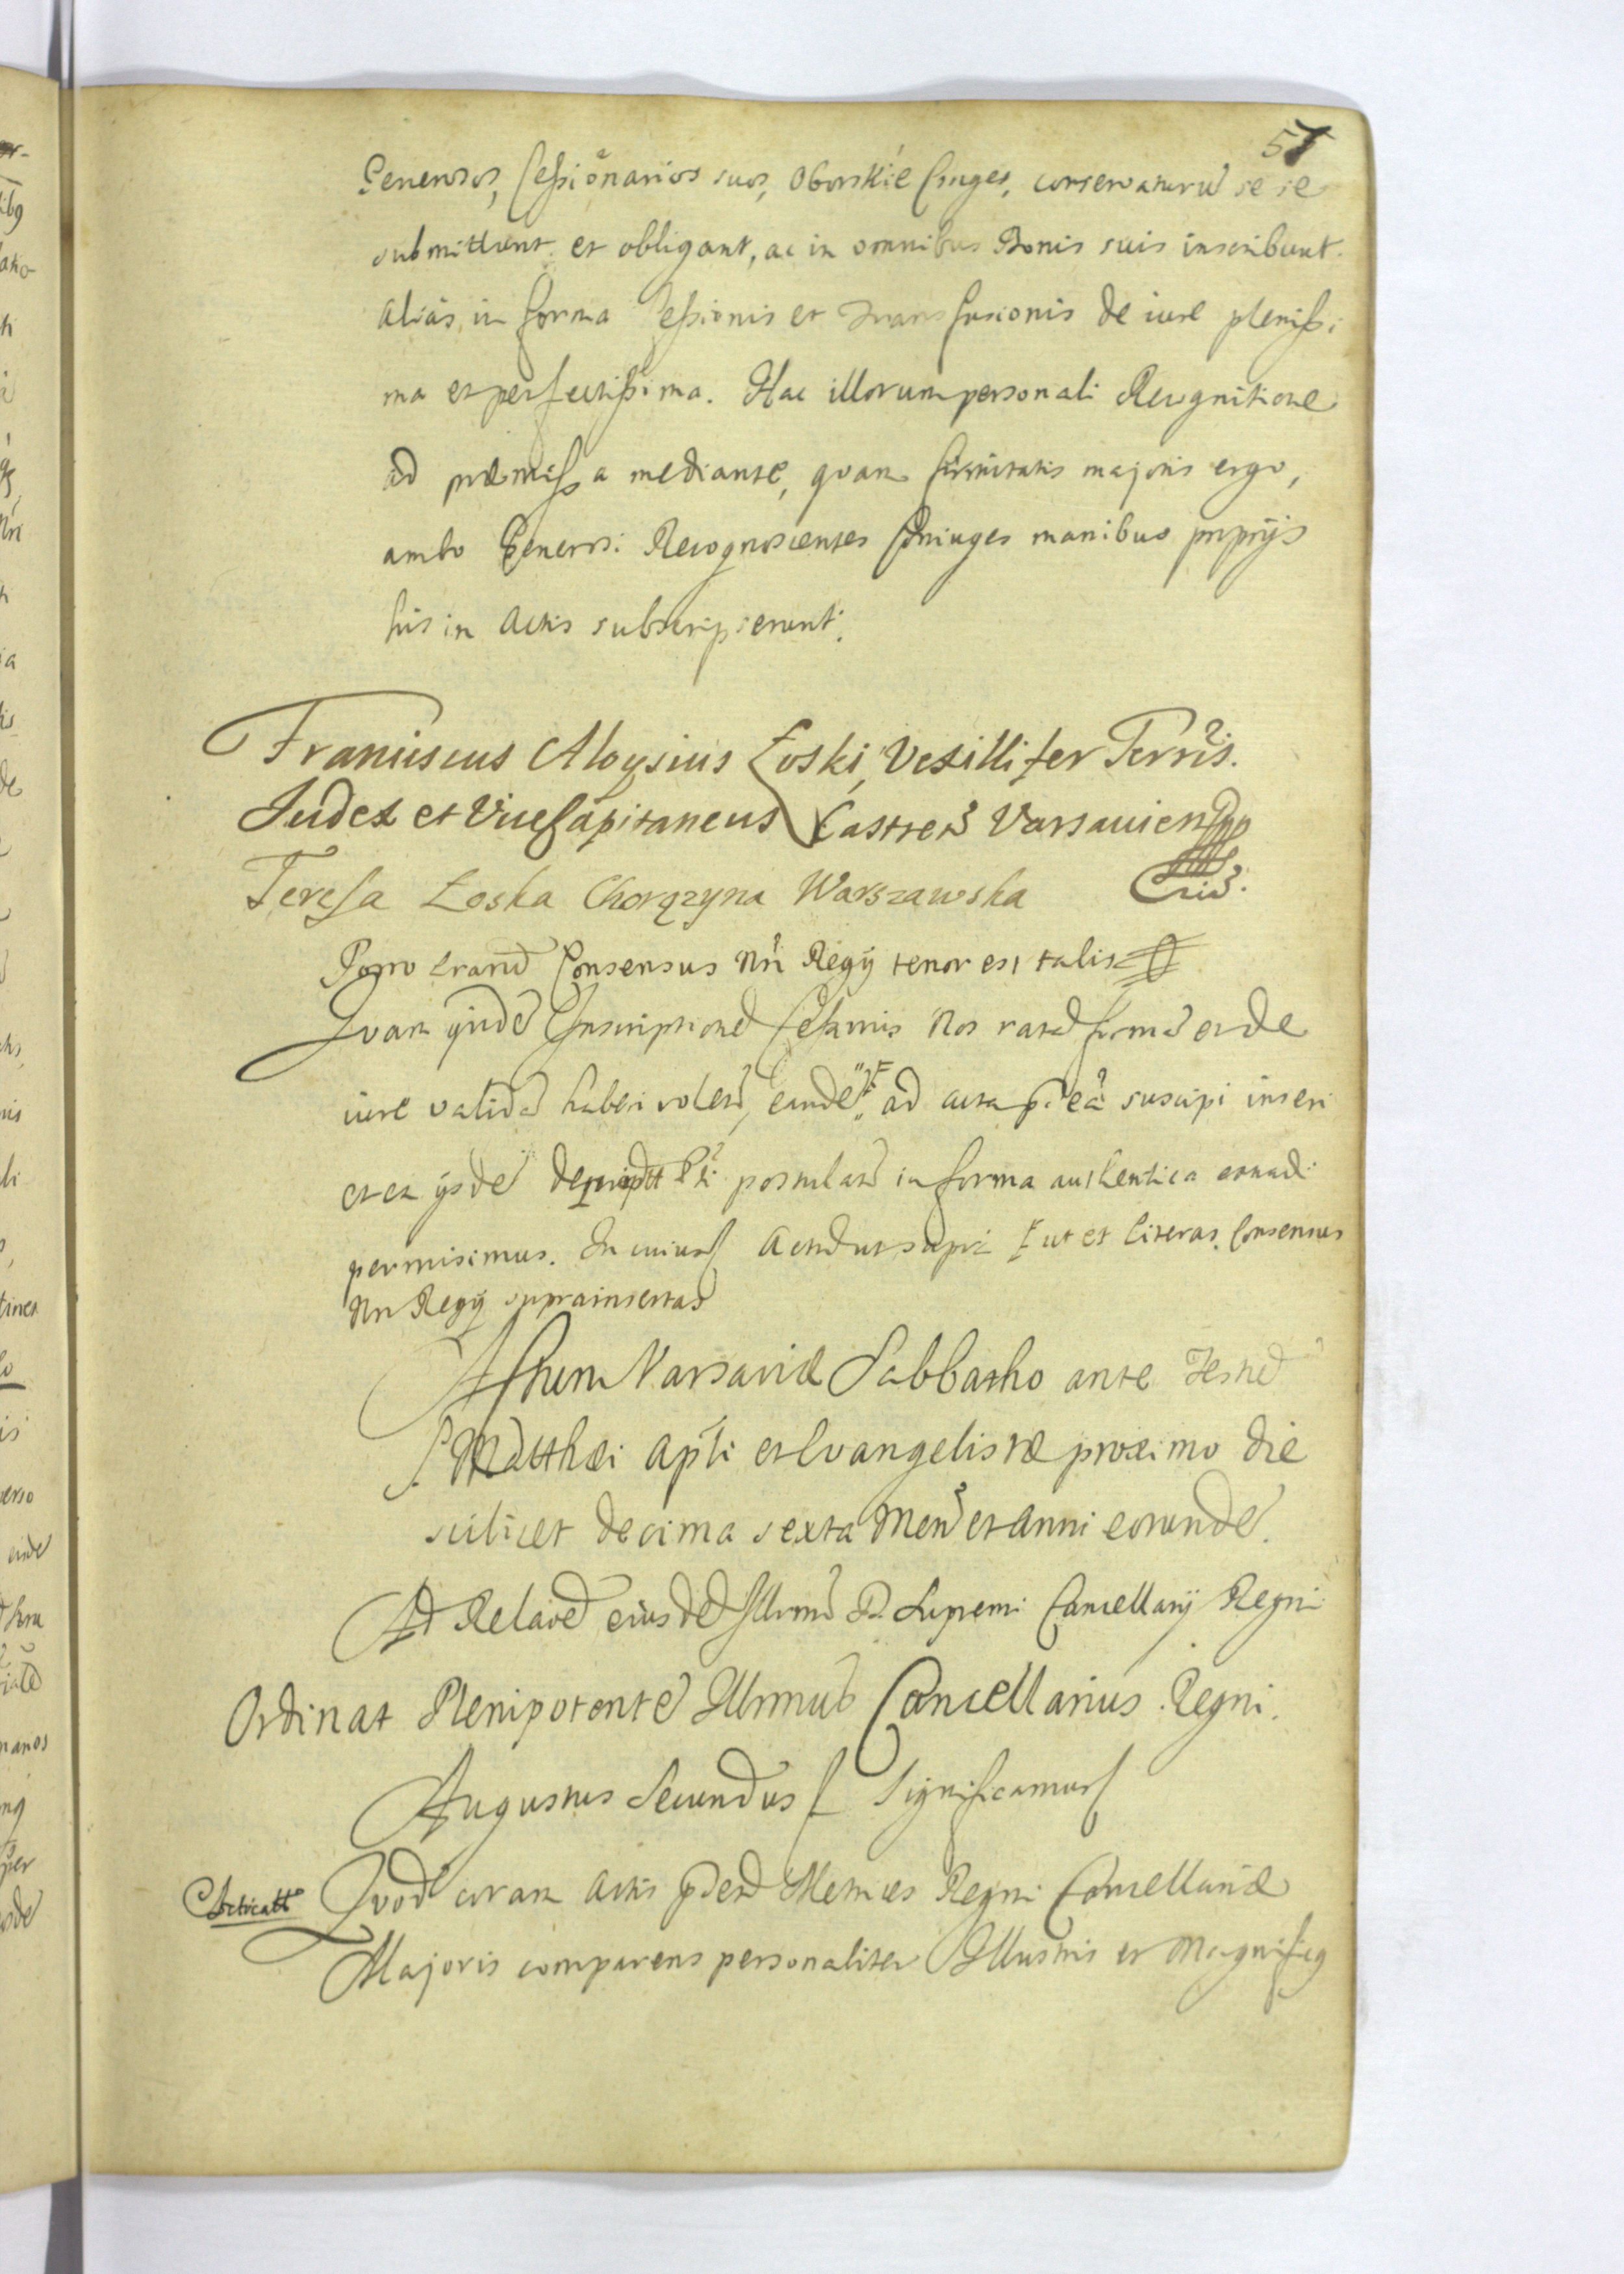 51
Generosos, Cessionarios suos, Oborskie Cnuges, conservaturũ se se
submittunt et obligant, ac in omnibus Bonis suis inscribunt.
alias in forma Cessionis et Transfusionis de iure plenissi
ma et perfectissima. Hac illorum personali Recognitione
ad præmissa mediante, quam firmitatis majoris ergo,
ambo Generosi Recognoscentes Coniuges manibus proprijs
his in Actis subscripserunt.
Franciscus Aloysius Łoski, Vexillifer Terris.
Judex et ViceCapitaneus Castren Varsavien
Teresa Łoska Chorązyna Warszawska
Porro Consensus Nri Regij tenor est talis
Quam quidẽ Inscriptionẽ Cessionis Nos ratã firmã et de
iure validã haberi volen, eandẽ ad acta suscipi inseri
et ex ijsdẽ Pti postulan in forma authentica extradi
permisimus. In cuius Actũ ut supra ut et Literas Consensus
Nri Regij suprainsertas
Actum Varsaviæ Sabbatho ante Festũ
S. Matthæi Apli et Evangelistæ proximo die
scilicet decima sexta Men et Anni eorundẽ.
Ad Relaoẽ eiusdẽ Illrmi D. Supremi Cancellarij Regni
Ordinat Plenipotentẽ Illrmus Cancellarius Regni.
Augustus Secundus Significamus
Quod coram Actis Metrices Regni Cancellariæ
Majoris comparens personaliter Illustris et Magnificq